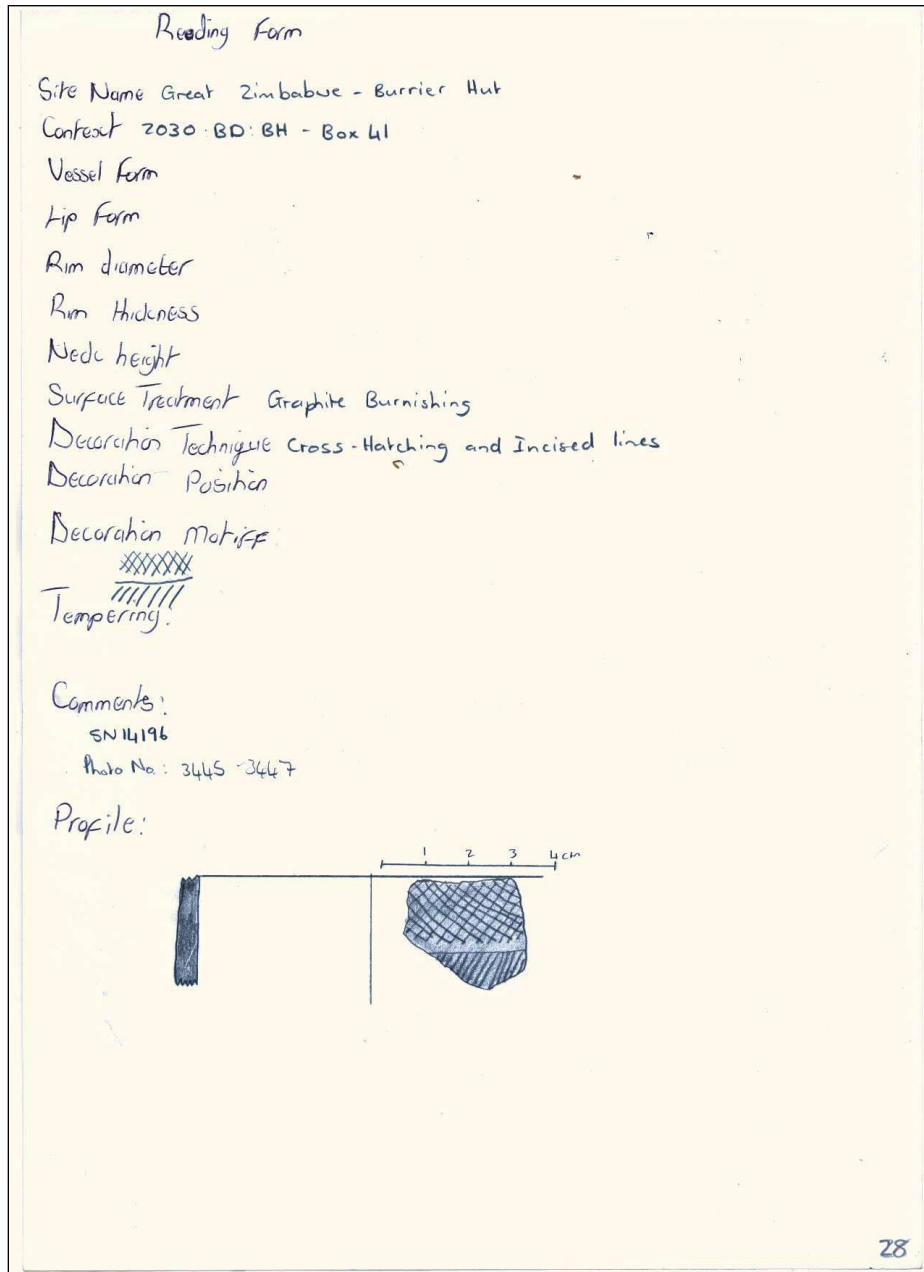 Reading Form
Site Name Great Zimbabwe - Burrier Hut
Context 2030:BD:BH - Box 41
Vessel Form
Lip Form
Rim diameter
Rim thickness
Neck height
Surface Treatment Graphite Burnishing
Decoration Technique Cross-Hatching and Incised lines
Decoration Position
Decoration Motiff
Tempering:
Comments:
SN14196
Photo No.: 3445-3447
Profile:
1 2 3 4cm
28